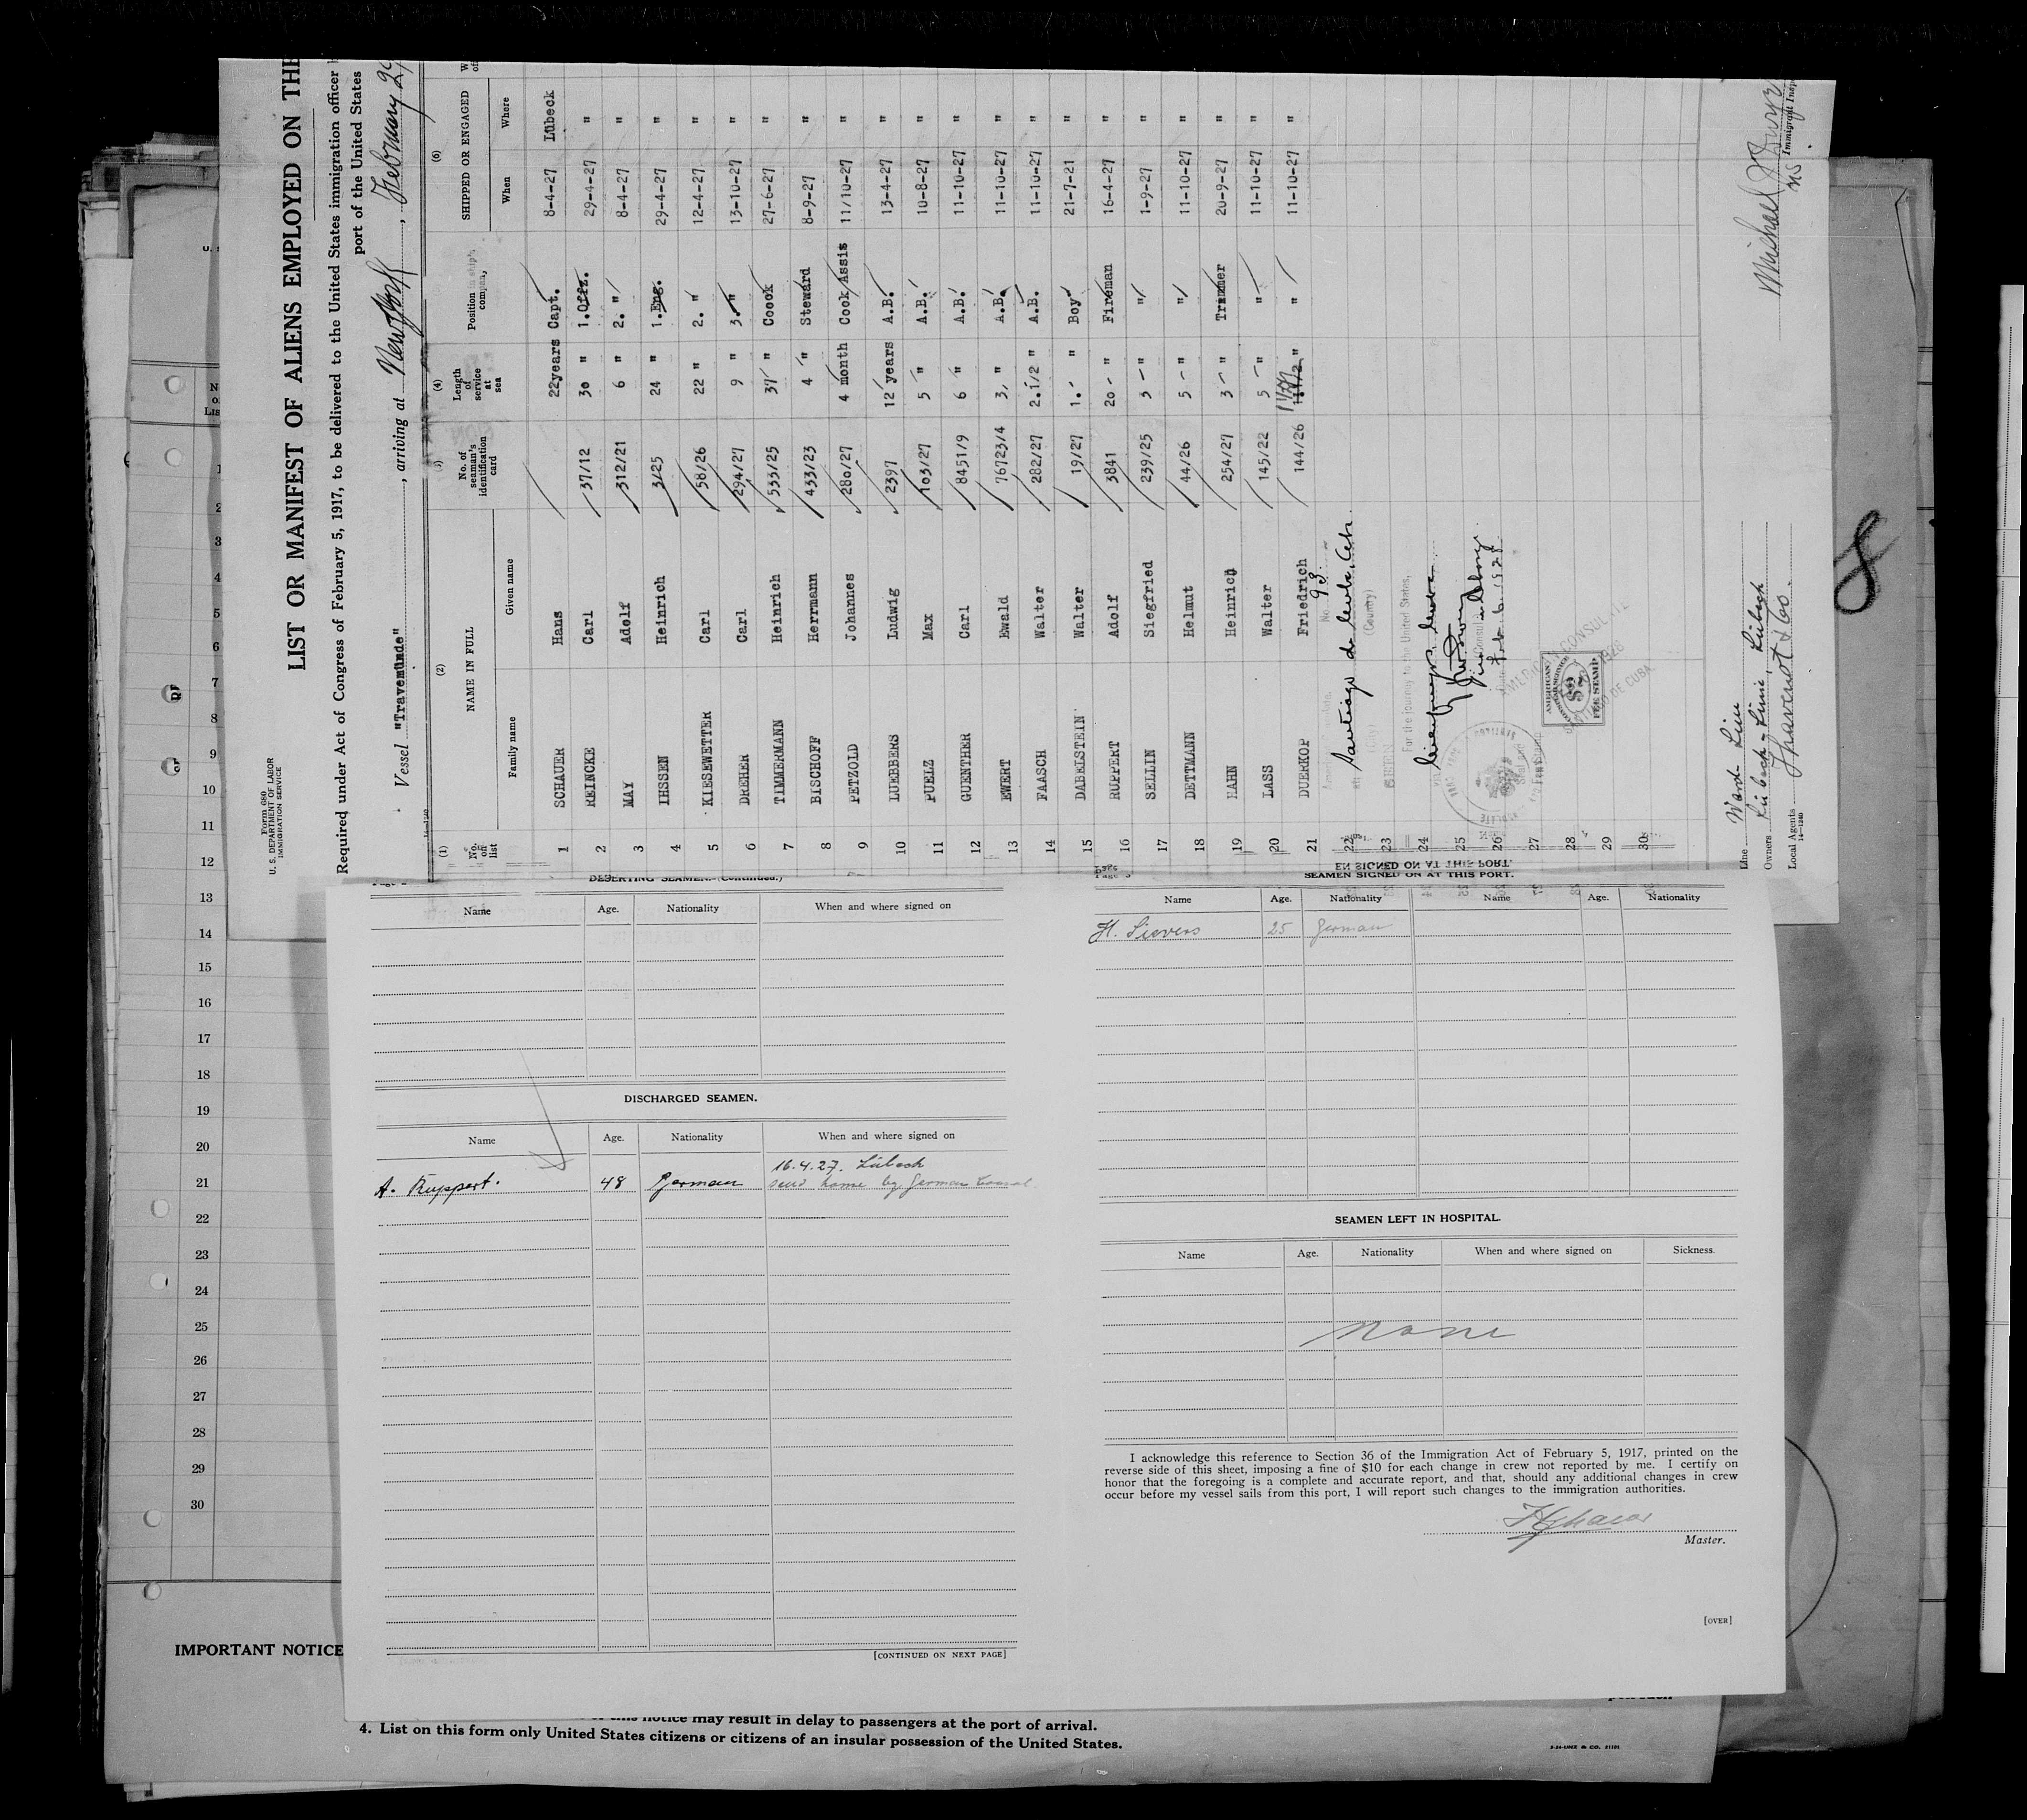 Form 680
U. S. DEPARTMENT OF LABOR
IMMIGRATION SERVICE
LIST OR MANIFEST OF ALIENS EMPLOYED ON THE
Required under Act of Congress of February 5, 1917, to be delivered to the United States immigration officer
port of the United States
Vessel "Travemünde", arriving at New York, February 29
(1) (2) (3) (4) (6)
No. on list NAME IN FULL No. of seaman's identification card Length of service at sea Position in ship's company, SHIPPED OR ENGAGED
Family name Given name When Where
1 SCHAUER Hans 22years Capt. 8-4-27 Lübeck
2 REINCKE Carl 37/12 30 " 1.Offz. 29-4-27 "
3 MAY Adolf 312/21 6 " 2. " 8-4-27 "
4 IHSSEN Heinrich 3/25 24 " 1.Eng. 29-4-27 "
5 KIESEWETTER Carl 58/26 22 " 2. " 12-4-27 "
6 DREHER Carl 294/27 9 " 3. " 13-10-27 "
7 TIMMERMANN Heinrich 533/25 37 " Coock 27-6-27 "
8 BISCHOFF Herrmann 433/23 4 " Steward 8-9-27 "
9 PETZOLD Johannes 280/27 4 month Cook Assis 11/10-27 "
10 LUEBBERS Ludwig 2397 12 years A.B. 13-4-27 "
11 PUELZ Max 103/27 5 " A.B. 10-8-27 "
12 GUENTHER Carl 8451/9 6 " A.B. 11-10-27 "
13 EWERT Ewald 76723/4 3, " A.B. 11-10-27 "
14 FAASCH Walter 282/27 2.1/2 " A.B. 11-10-27 "
15 DABELSTEIN Walter 19/27 1. " Boy 21-7-21 "
16 RUPPERT Adolf 3841 20 - " Fireman 16-4-27 "
17 SELLIN Siegfried 239/25 3 - " " 1-9-27 "
18 DETTMANN Helmut 44/26 5 - " " 11-10-27 "
19 HAHN Heinrich 254/27 3 - " Trimmer 20-9-27 "
20 LASS Walter 145/22 5 - " " 11-10-27 "
21 DUERKOP Friedrich 144/26 " " 11-10-27 "
22
23
24
25
26
27
28
29
30
No. 93
Santiago de Cuba
(Country)
For the journey to the United States,
AMERICAN CONSULATE
SANTIAGO DE CUBA
AMERICAN
FEE STAMP
Line Ward Line
Owners Lübeck-Linie, Lübeck
Local Agents
14-1240
Michael J.
Immigrant Insp
DESERTING SEAMEN. (Continued.)
Name Age. Nationality When and where signed on
DISCHARGED SEAMEN.
Name Age. Nationality When and where signed on
16.4.27. Lübeck
A. Ruppert. 48 German send home by German Consul.
[CONTINUED ON NEXT PAGE]
SEAMEN SIGNED ON AT THIS PORT.
Name Age. Nationality Name Age. Nationality
H. Sievers 25 German
SEAMEN LEFT IN HOSPITAL.
Name Age. Nationality When and where signed on Sickness.
None
I acknowledge this reference to Section 36 of the Immigration Act of February 5, 1917, printed on the
reverse side of this sheet, imposing a fine of $10 for each change in crew not reported by me. I certify on
honor that the foregoing is a complete and accurate report, and that, should any additional changes in crew
occur before my vessel sails from this port, I will report such changes to the immigration authorities.
HSchauer
Master.
[OVER]
1
2
3
4
5
6
7
8
9
10
11
12
13
14
15
16
17
18
19
20
21
22
23
24
25
26
27
28
29
30
8
IMPORTANT NOTICE
notice may result in delay to passengers at the port of arrival.
4. List on this form only United States citizens or citizens of an insular possession of the United States.